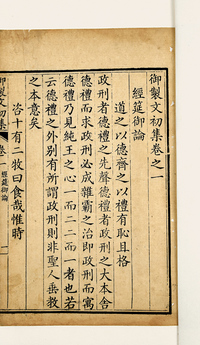 御製文初集卷之一
經筵御論
道之以德齊之以禮有恥且格
政刑者德禮之先聲德禮者政刑之大本舍
德禮而求政刑必成雜霸之治即政刑而寓
德禮乃見純王之心一而二二而一者也若
云德禮之外別有所謂政刑則非聖人垂教
之本意矣
咨十有二牧曰食哉惟時
御製文初集
卷一
經筵御論
一